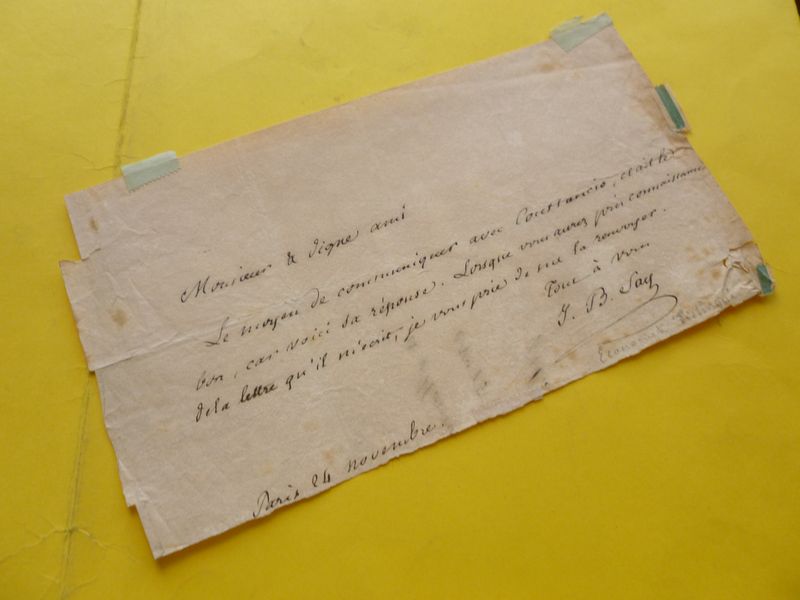 Monsieur & digne ami
Le moyen de communiquer avec Constancio, était le
bon, car voici sa réponse. Lorsque vous aurez pris connaissance
de la lettre qu'il m'écrit, je vous prie de me la renvoyer.
Tout à vous
J. B. Say
Economiste
Paris 24 novembre.